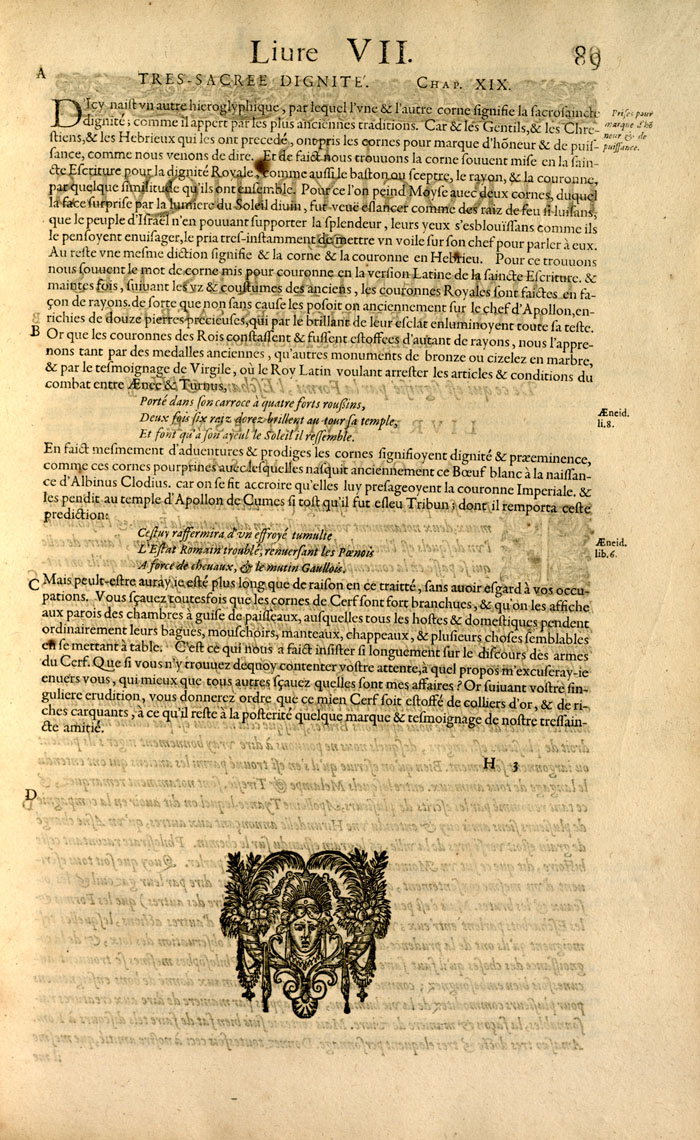 Liure VII. 89
A
TRES-SACREE DIGNITE. CHAP. XIX.
D'Icy naist vn autre hieroglyphique, par lequel l'vne & l'autre corne signifie la sacrosaincte
dignité; comme il appert par les plus anciennes traditions. Car & les Gentils, & les Chre-
stiens, & les Hebrieux qui les ont precedé, ont pris les cornes pour marque d'hõneur & de puis-
sance, comme nous venons de dire. Et de faict nous trouuons la corne souuent mise en la sain-
cte Escriture pour la dignité Royale, comme aussi le baston ou sceptre, le rayon, & la couronne,
par quelque similitude qu'ils ont ensemble. Pour ce l'on peind Moyse auec deux cornes, duquel
la face surprise par la lumiere du Soleil diuin, fut veuë eslancer comme des raiz de feu si luisans,
que le peuple d'Israel n'en pouuant supporter la splendeur, leurs yeux s'esblouïssans comme ils
le pensoyent enuisager, le pria tres-instamment de mettre vn voile sur son chef pour parler à eux.
Au reste vne mesme diction signifie & la corne & la couronne en Hebrieu. Pour ce trouuons
nous souuent le mot de corne mis pour couronne en la version Latine de la saincte Escriture. &
maintes fois, suiuant les vz & coustumes des anciens, les couronnes Royales sont faictes en fa-
çon de rayons. de sorte que non sans cause les posoit on anciennement sur le chef d'Apollon, en-
richies de douze pierres precieuses, qui par le brillant de leur esclat enluminoyent toute sa teste.
B
Or que les couronnes des Rois constassent & fussent estoffees d'autant de rayons, nous l'appre-
nons tant par des medalles anciennes, qu'autres monuments de bronze ou cizelez en marbre,
& par le tesmoignage de Virgile, où le Roy Latin voulant arrester les articles & conditions du
combat entre Ænee & Turnus,
Porté dans son carroce à quatre forts roußins,
Deux fois six raiz dorez brillent au tour sa temple,
Et font qu'à son ayeul le Soleil il ressemble.
En faict mesmement d'aduentures & prodiges les cornes signifioyent dignité & præeminence,
comme ces cornes pourprines auec lesquelles nasquit anciennement ce Bœuf blanc à la naissan-
ce d'Albinus Clodius. car on se fit accroire qu'elles luy presageoyent la couronne Imperiale. &
les pendit au temple d'Apollon de Cumes si tost qu'il fut esleu Tribun; dont il remporta ceste
prediction:
Cestuy raffermira d'vn effroyé tumulte
L'Estat Romain troublé, renuersant les Pœnois
A force de cheuaux, & le mutin Gaullois.
C
Mais peult-estre auray ie esté plus long que de raison en ce traitté, sans auoir esgard à vos occu-
pations. Vous sçauez toutesfois que les cornes de Cerf sont fort branchues, & qu'on les affiche
aux parois des chambres à guise de paisseaux, ausquelles tous les hostes & domestiques pendent
ordinairement leurs bagues, mouschoirs, manteaux, chappeaux, & plusieurs choses semblables
en se mettant à table. C'est ce qui nous a faict insister si longuement sur le discours des armes
du Cerf. Que si vous n'y trouuez dequoy contenter vostre attente, à quel propos m'excuseray-ie
enuers vous, qui mieux que tous autres sçauez quelles sont mes affaires? Or suiuant vostre sin-
guliere erudition, vous donnerez ordre que ce mien Cerf soit estoffé de colliers d'or, & de ri-
ches carquants, à ce qu'il reste à la posterité quelque marque & tesmoignage de nostre tressain-
cte amitié.
H 3
D
Prises pour
marque d'hõ
neur & de
puissance.
Æneid.
li.8.
Æneid.
lib.6.